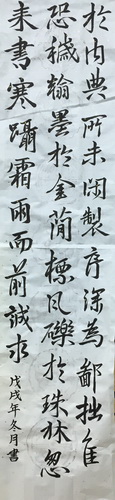 於內典所未閑製序深為鄙拙唯
恐穢翰墨於金簡標瓦礫於珠林忽
来書寒躡霜雨而前誠求
戊戌年冬月書